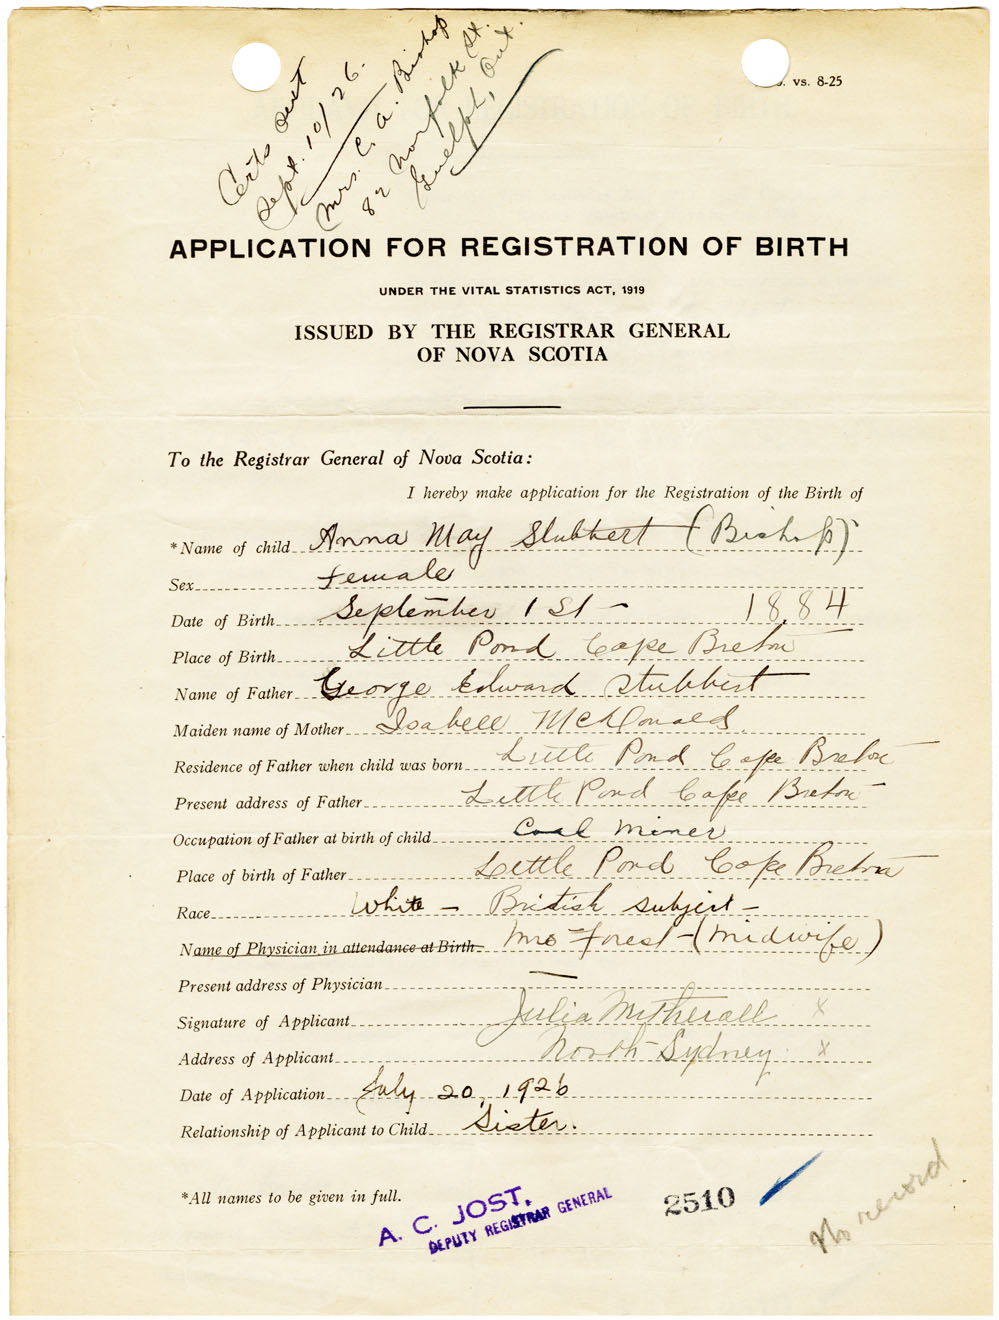 Certs sent
Sept. 10/26.
Mrs. C. A. Bishop
82 Norfolk St.
Guelph, Ont.
vs. 8-25
APPLICATION FOR REGISTRATION OF BIRTH
UNDER THE VITAL STATISTICS ACT, 1919
ISSUED BY THE REGISTRAR GENERAL
OF NOVA SCOTIA
To the Registrar General of Nova Scotia:
I hereby make application for the Registration of the Birth of
*Name of child Anna May Stubbert (Bishop)
Sex Female
Date of Birth September 1st - 1884
Place of Birth Little Pond Cape Breton
Name of Father George Edward Stubbert
Maiden name of Mother Isabell McDonald
Residence of Father when child was born Little Pond Cape Breton
Present address of Father Little Pond Cape Breton
Occupation of Father at birth of child Coal miner
Place of birth of Father Little Pond Cape Breton
Race White - British subject -
Name of Physician in attendance at Birth Mrs Forest - (Midwife)
Present address of Physician —
Signature of Applicant Julia x
Address of Applicant North Sydney. x
Date of Application July 20, 1926
Relationship of Applicant to Child Sister.
*All names to be given in full.
A. C. JOST,
DEPUTY REGISTRAR GENERAL
2510
No record